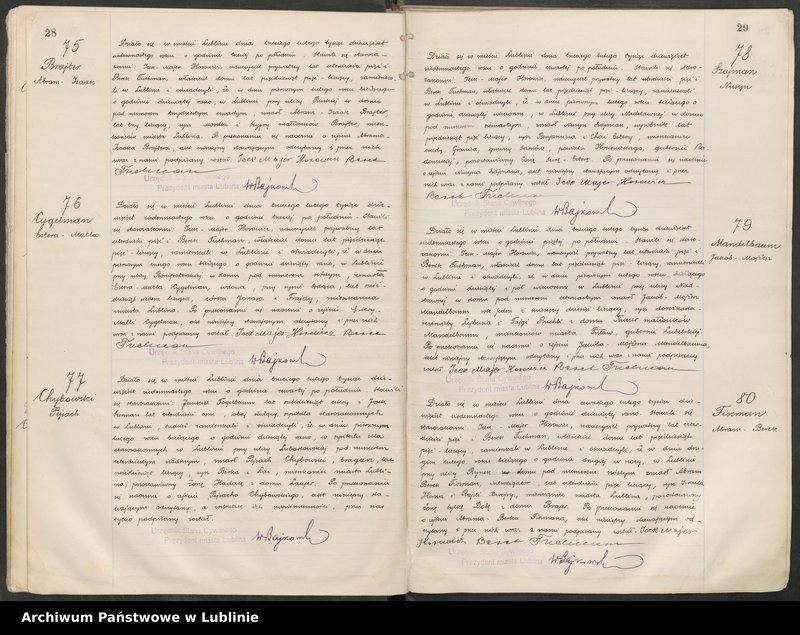 28
75
Brajter
Abram-Icaak
Działo się w mieście Lublinie dnia trzeciego lutego tysiąc dziewięćset
siedemnastego roku o godzinie trzeciej po południu. Stawili się starozakonni:
Icek-Major Horowicz, nauczyciel prywatny lat
Berek Fuchman, właściciel domu lat pięćdziesiąt pięć liczący, zamieszkali
w Lublinie i oświadczyli, iż w dniu pierwszym lutego roku bieżącego
o godzinie dziewiątej rano, w Lublinie przy ulicy Ruskiej w domu
pod numerem zmarł Abram-Icaak Brajter
lat trzy liczący, syn małżonków Brajter, mieszkańców
miasta Lublina. Po przekonaniu się naocznie o zejściu Abrama-
Icaaka Brajtera, akt niniejszy stawającym odczytany i przez nich
wraz z nami podpisany został. Icek Major Horowicz Berek
Urzędnik Stanu Cywilnego
Prezydent miasta Lublina
76
Cygelman
Estera-Matla
Działo się w mieście Lublinie dnia trzeciego lutego tysiąc dziewięćset
siedemnastego roku o godzinie trzeciej po południu. Stawili
się starozakonni: Icek-Major Horowicz, nauczyciel prywatny lat
i Berek Fuchman, właściciel domu lat pięćdziesiąt
pięć liczący, zamieszkali w Lublinie i oświadczyli, iż w dniu
pierwszym lutego roku bieżącego o godzinie dziewiątej rano, w Lublinie
przy ulicy w domu pod numerem szóstym, zmarła
Estera-Matla Cygelman, wdowa, przy synu będąca, lat
siedem licząca, córka Jonasa i Frajdy, mieszkanka
miasta Lublina. Po przekonaniu się naocznie o zejściu Estery-
Matli Cygelman, akt niniejszy stawającym odczytany i przez nich
wraz z nami podpisany został. Icek Major Horowicz Berek
Urzędnik Stanu Cywilnego
Prezydent miasta Lublina
77
Chybowski
Pejsach
Działo się w mieście Lublinie dnia trzeciego lutego tysiąc dziewięćset
siedemnastego roku o godzinie czwartej po południu. Stawili
się starozakonni: Jankiel Fogelbaum lat cztery i
lat czterdzieści osm, obaj służący szpitala starozakonnych
w Lublinie, tudzież zamieszkali i oświadczyli, iż w dniu pierwszym
lutego roku bieżącego o godzinie dziewiątej rano, w szpitalu dla
starozakonnych w Lublinie przy ulicy Lubartowskiej pod numerem
zmarł Pejsach Chybowski, tragarz, lat
liczący, syn Berka i Łai, mieszkaniec miasta Lublina,
pozostawiwszy żonę z domu
się naocznie o zejściu Pejsacha Chybowskiego, akt niniejszy stawającym
odczytany, a wskutek ich niepiśmienności, przez nas
tylko podpisany został.
Urzędnik Stanu Cywilnego
Prezydent miasta Lublina
29
78
Szajman
Nusyn
Działo się w mieście Lublinie dnia trzeciego lutego tysiąc dziewięćset
siedemnastego roku o godzinie czwartej po południu. Stawili się starozakonni:
Icek-Major Horowicz, nauczyciel prywatny lat
Berek Fuchman, właściciel domu lat pięćdziesiąt pięć liczący, zamieszkali
w Lublinie i oświadczyli, iż w dniu pierwszym lutego roku bieżącego o
godzinie dziewiątej wieczorem, w Lublinie przy ulicy Nadstawnej w domu
pod numerem zmarł Nusyn Szajman, wyrobnik lat
pięćdziesiąt pięć liczący, syn Benjamina i Chai Estery, mieszkaniec
osady Granica, gminy powiatu Kozienickiego, gubernii Radomskiej,
pozostawiwszy żonę Esterę. Po przekonaniu się naocznie
o zejściu Nusyna Szajmana, akt niniejszy stawającym odczytany i przez
nich wraz z nami podpisany został. Icek Major Horowicz
Berek
Urzędnik Stanu Cywilnego
Prezydent miasta Lublina
79
Mandelbaum
Jakób-Mojżesz
Działo się w mieście Lublinie dnia trzeciego lutego tysiąc dziewięćset
siedemnastego roku o godzinie piątej po południu. Stawili się starozakonni:
Icek-Major Horowicz, nauczyciel prywatny lat
Berek Fuchman, właściciel domu lat pięćdziesiąt pięć liczący, zamieszkali
w Lublinie i oświadczyli, iż w dniu pierwszym lutego roku bieżącego
o godzinie dziewiątej i pół wieczorem w Lublinie przy ulicy Nadstawnej
w domu pod numerem zmarł Jakób-Mojżesz
Mandelbaum rok jeden i miesięcy dziesięć liczący, syn
Lejbusia i Fajgi z domu małżonków
Mandelbaum, mieszkańców miasta Puław, gubernii Lubelskiej.
Po przekonaniu się naocznie o zejściu Jakóba-Mojżesza Mandelbauma,
akt niniejszy stawającym odczytany i przez nich wraz z nami podpisany
został. Icek Major Horowicz Berek
Urzędnik Stanu Cywilnego
Prezydent miasta Lublina
80
Firman
Abram-Berek
Działo się w mieście Lublinie dnia czwartego lutego tysiąc dziewięćset
siedemnastego roku o godzinie dziewiątej rano. Stawili się
starozakonni: Icek-Major Horowicz, nauczyciel prywatny lat
pięć i Berek Fuchman, właściciel domu lat pięćdziesiąt
pięć liczący, zamieszkali w Lublinie i oświadczyli, iż w dniu drugim
lutego roku bieżącego o godzinie drugiej w nocy, w Lublinie
przy ulicy Rynek w domu pod numerem szóstym zmarł Abram
Berek Firman, lat czterdzieści pięć liczący, syn
i Rajzli mieszkaniec miasta Lublina, pozostawiwszy
żonę z domu Brajer. Po przekonaniu się naocznie
o zejściu Abrama-Berka Firmana, akt niniejszy stawającym odczytany
i przez nich wraz z nami podpisany został. Icek Major
Horowicz Berek
Urzędnik Stanu Cywilnego
Prezydent miasta Lublina
Archiwum Państwowe w Lublinie